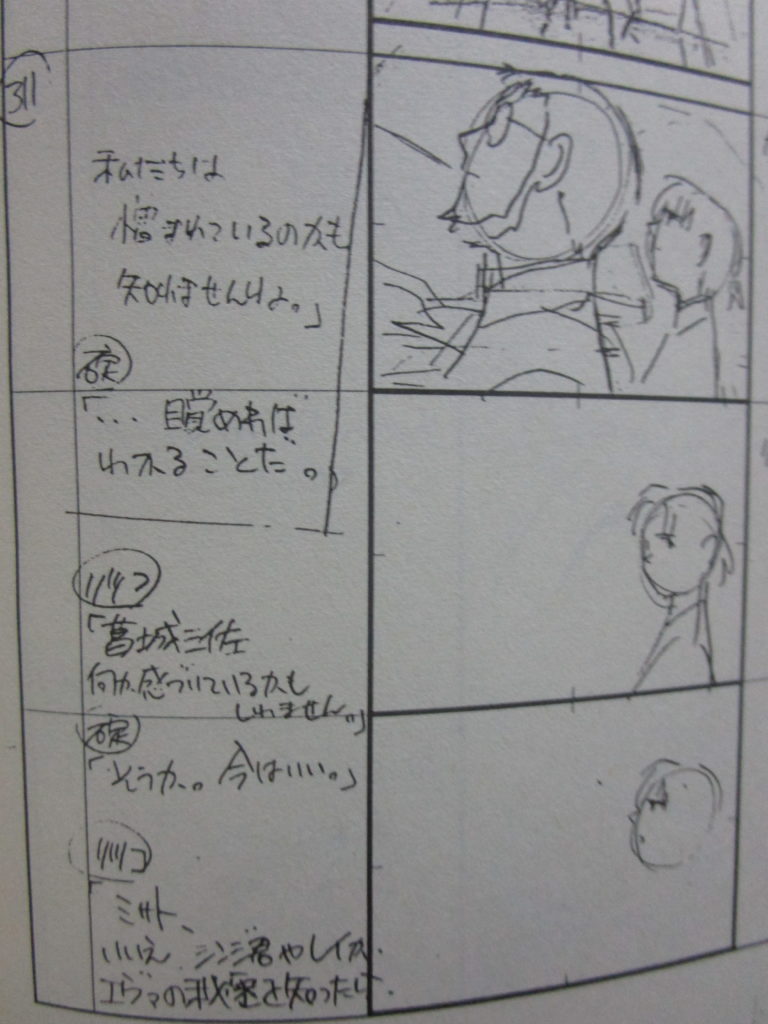 311
私たちは
憎まれているのかも
知れませんねよ。」
碇
「… 目覚めれば
わかることだ。」
リツコ
「葛城三佐
何か感づいているかも
しれません。」
碇
「そうか。今はいい。」
リツコ
「ミサト、
いいえ シンジ君やレイが、
エヴァの秘密を知ったら、